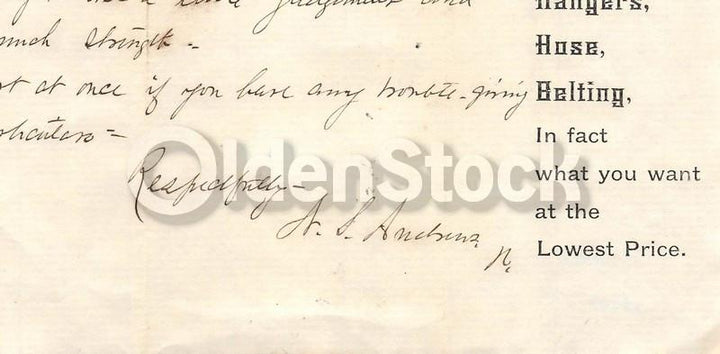 much strength -
at once if you have any trouble-giving
Respectfully -
N. S. Andrews
Hangers,
Hose,
Belting,
In fact
what you want
at the
Lowest Price.
OldenStock